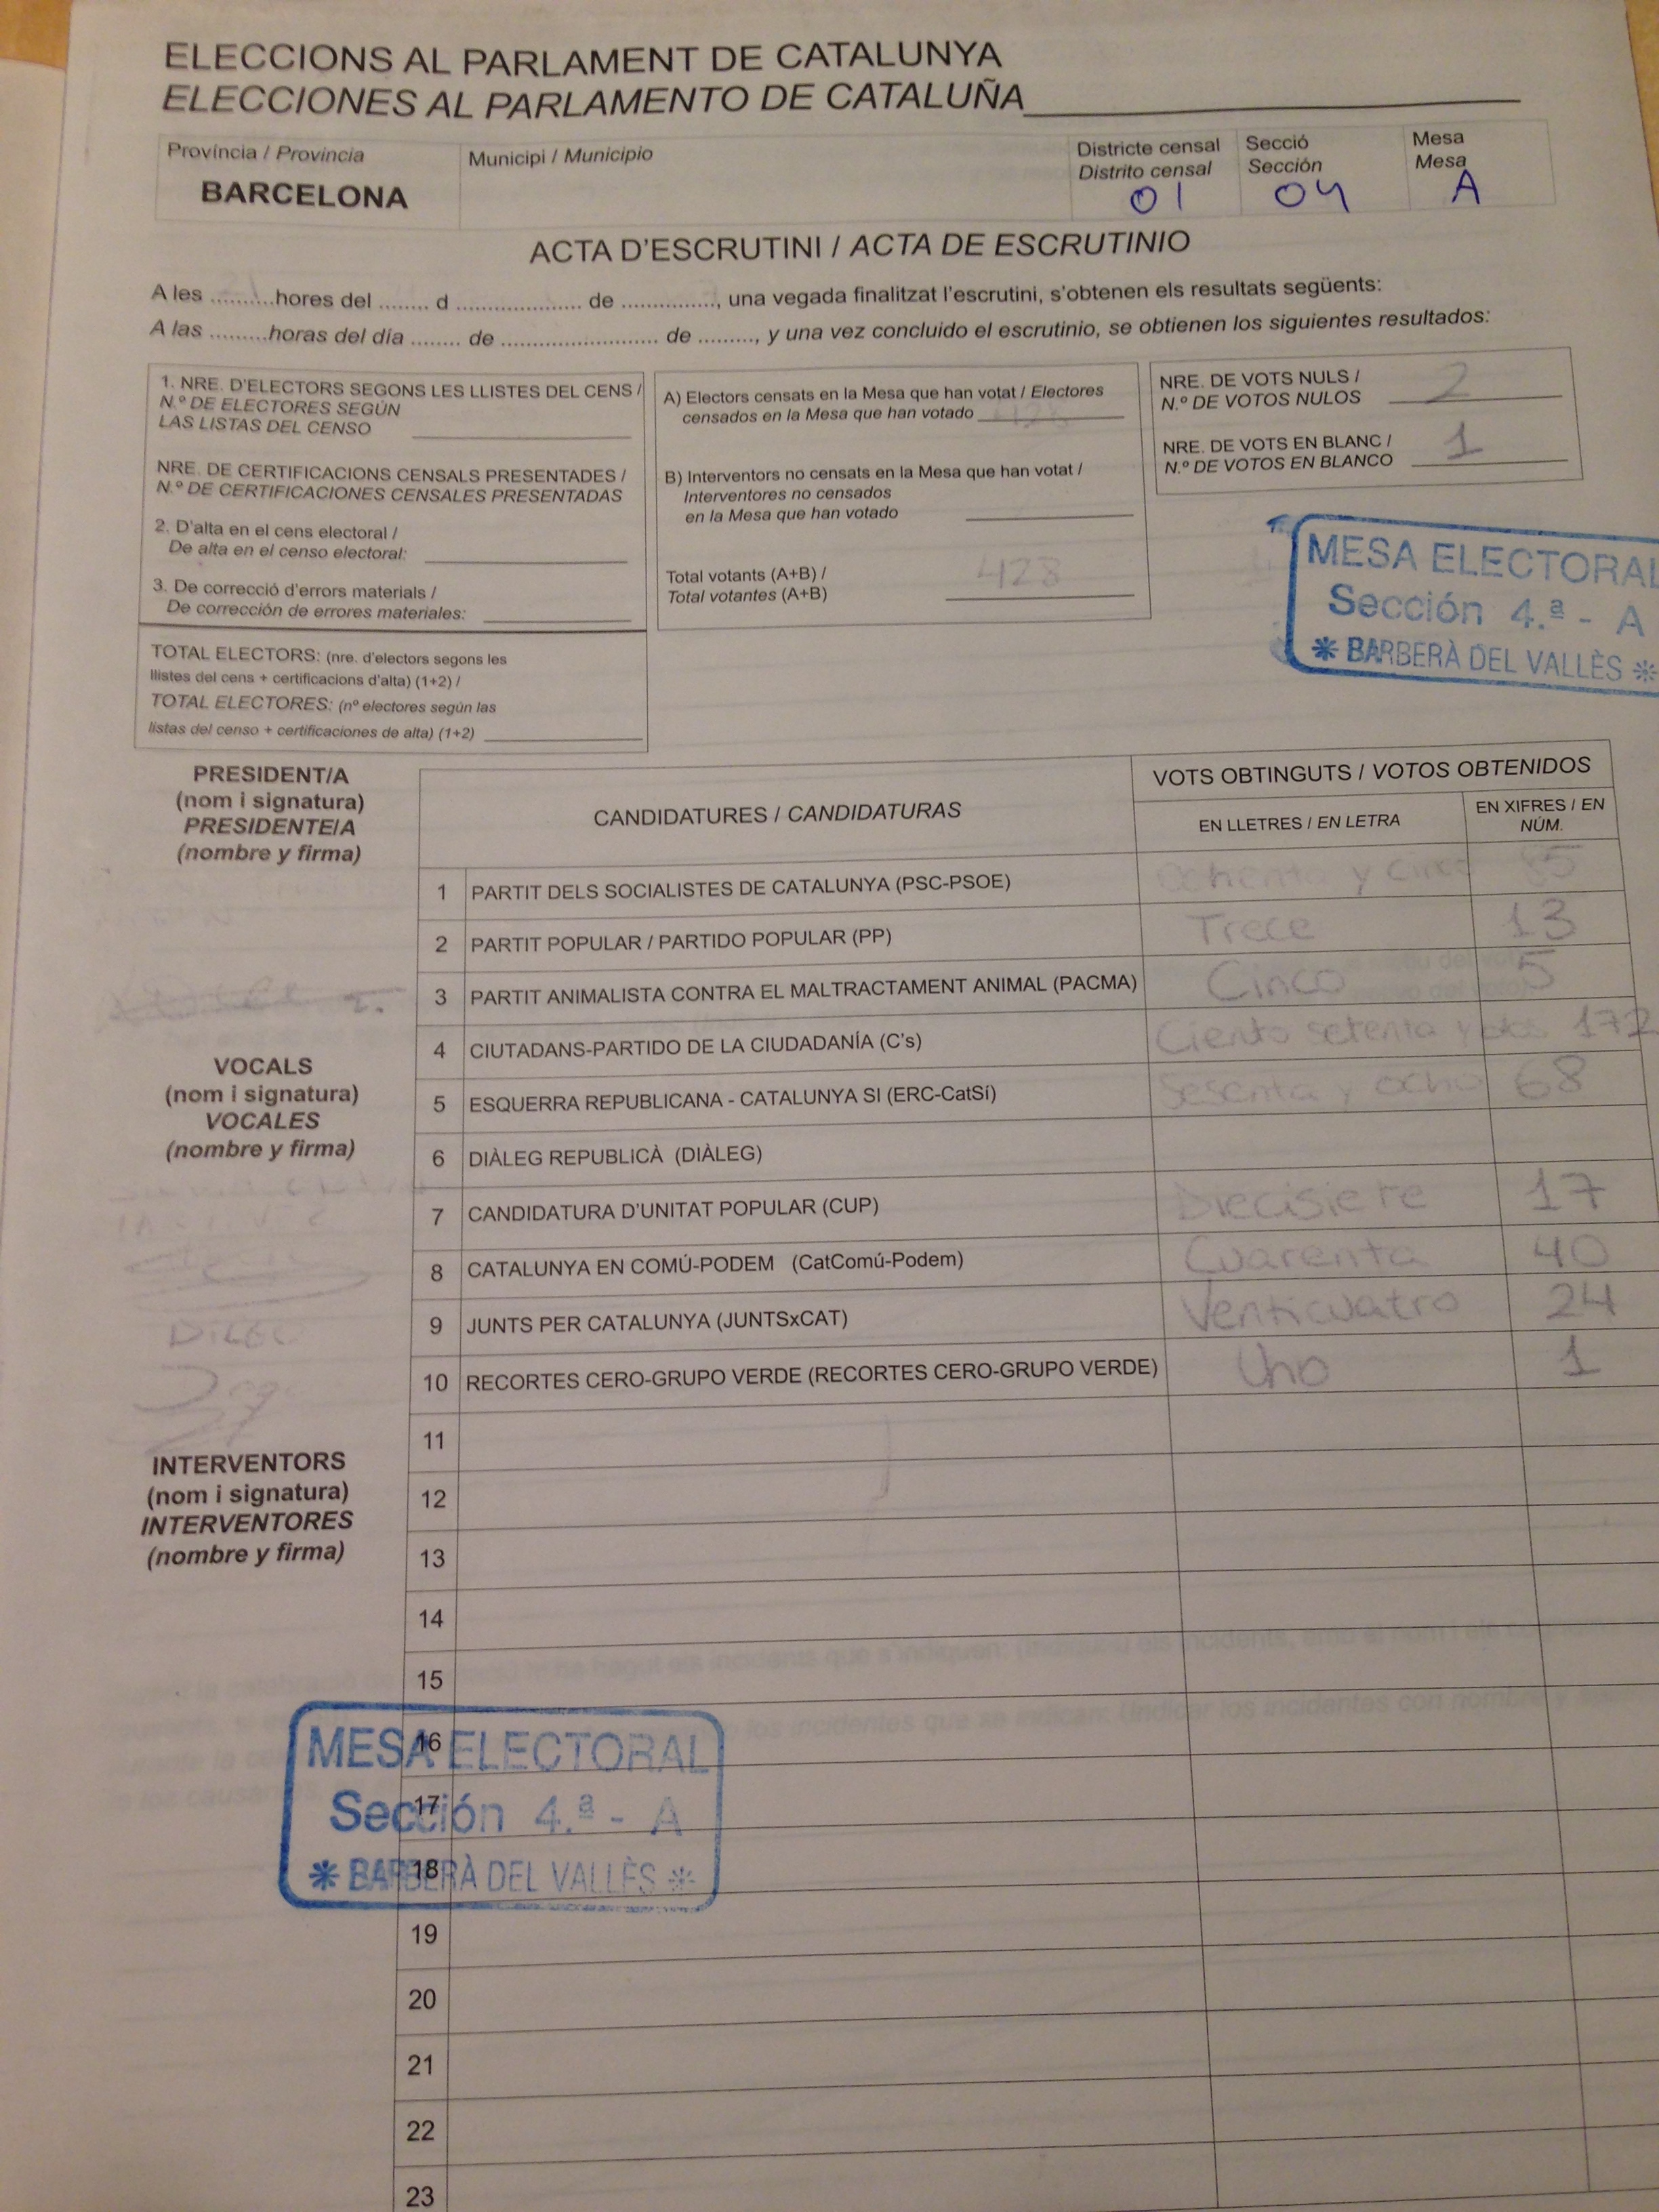 ELECCIONS AL PARLAMENT DE CATALUNYA
ELECCIONES AL PARLAMENTO DE CATALUÑA
Província / Provincia
BARCELONA
Municipi / Municipio
Districte censal
Distrito censal
01
Secció
Sección
04
Mesa
Mesa
A
ACTA D'ESCRUTINI / ACTA DE ESCRUTINIO
A les ..........hores del ........ d .................... de ..............., una vegada finalitzat l'escrutini, s'obtenen els resultats següents:
A las .........horas del día ........ de ......................... de ........., y una vez concluido el escrutinio, se obtienen los siguientes resultados:
1. NRE. D'ELECTORS SEGONS LES LLISTES DEL CENS /
N.º DE ELECTORES SEGÚN
LAS LISTAS DEL CENSO
NRE. DE CERTIFICACIONS CENSALS PRESENTADES /
N.º DE CERTIFICACIONES CENSALES PRESENTADAS
2. D'alta en el cens electoral /
De alta en el censo electoral:
3. De correcció d'errors materials /
De corrección de errores materiales:
TOTAL ELECTORS: (nre. d'electors segons les
llistes del cens + certificacions d'alta) (1+2) /
TOTAL ELECTORES: (nº electores según las
listas del censo + certificaciones de alta) (1+2)
A) Electors censats en la Mesa que han votat / Electores
censados en la Mesa que han votado 428
B) Interventors no censats en la Mesa que han votat /
Interventores no censados
en la Mesa que han votado
Total votants (A+B) /
Total votantes (A+B) 428
NRE. DE VOTS NULS /
N.º DE VOTOS NULOS 2
NRE. DE VOTS EN BLANC /
N.º DE VOTOS EN BLANCO 1
MESA ELECTORAL
Sección 4.ª - A
* BARBERÀ DEL VALLÈS *
PRESIDENT/A
(nom i signatura)
PRESIDENTE/A
(nombre y firma)
VOCALS
(nom i signatura)
VOCALES
(nombre y firma)
INTERVENTORS
(nom i signatura)
INTERVENTORES
(nombre y firma)
CANDIDATURES / CANDIDATURAS
VOTS OBTINGUTS / VOTOS OBTENIDOS
EN LLETRES / EN LETRA
EN XIFRES / EN
NÚM.
1 PARTIT DELS SOCIALISTES DE CATALUNYA (PSC-PSOE) Ochenta y cinco 85
2 PARTIT POPULAR / PARTIDO POPULAR (PP) Trece 13
3 PARTIT ANIMALISTA CONTRA EL MALTRACTAMENT ANIMAL (PACMA) Cinco 5
4 CIUTADANS-PARTIDO DE LA CIUDADANÍA (C's) Ciento setenta y dos 172
5 ESQUERRA REPUBLICANA - CATALUNYA SI (ERC-CatSí) Sesenta y ocho 68
6 DIÀLEG REPUBLICÀ (DIÀLEG)
7 CANDIDATURA D'UNITAT POPULAR (CUP) Diecisiete 17
8 CATALUNYA EN COMÚ-PODEM (CatComú-Podem) Cuarenta 40
9 JUNTS PER CATALUNYA (JUNTSxCAT) Venticuatro 24
10 RECORTES CERO-GRUPO VERDE (RECORTES CERO-GRUPO VERDE) Uno 1
11
12
13
14
15
16
17
18
19
20
21
22
23
MESA ELECTORAL
Sección 4.ª - A
* BARBERÀ DEL VALLÈS *